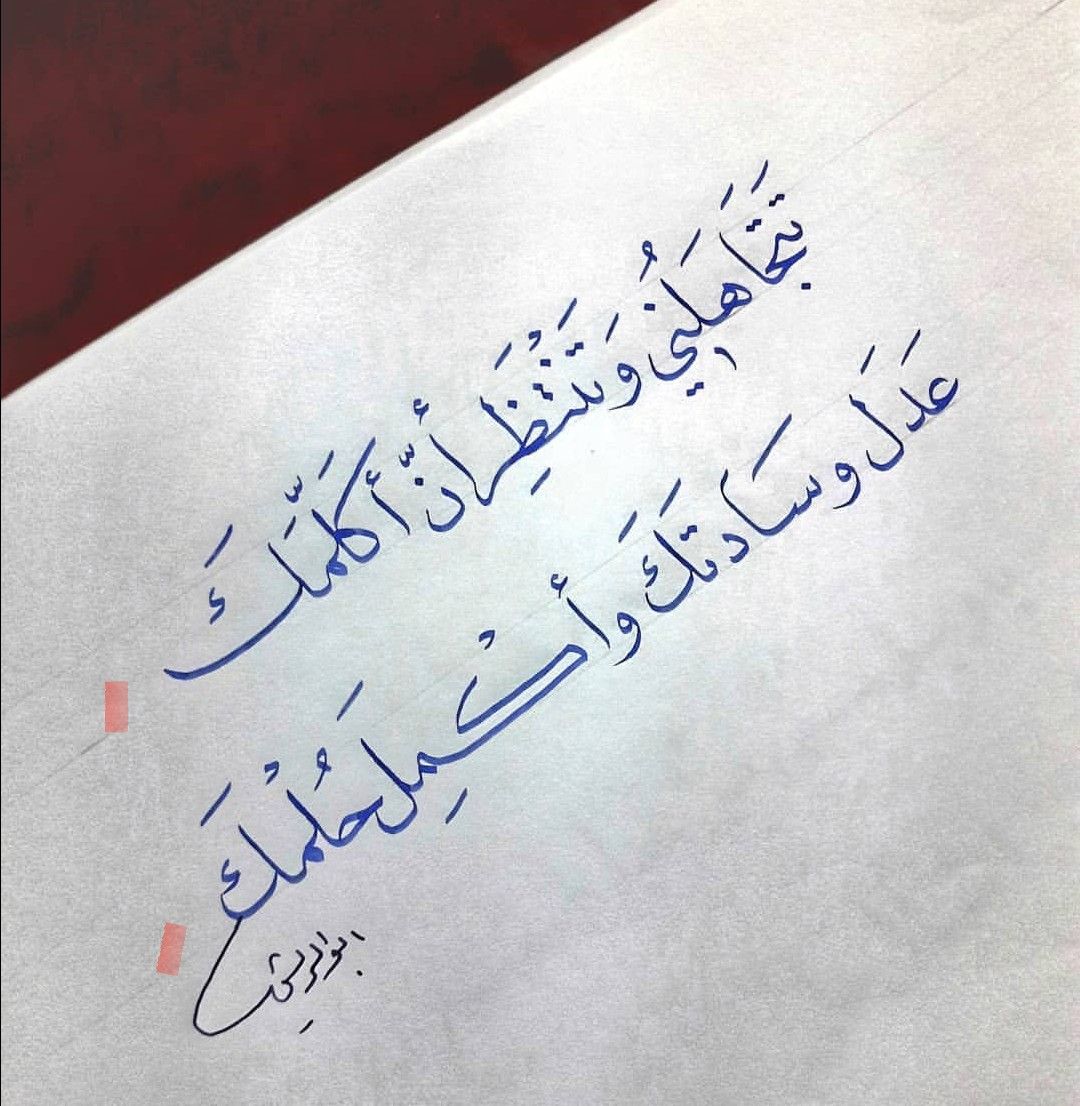 تَجَاهَلُنِي وَتَنْتَظِر أنّ أكَلّمَكَ
عَدَل وسَادتَكَ وأكْمِل حُلْمكَ